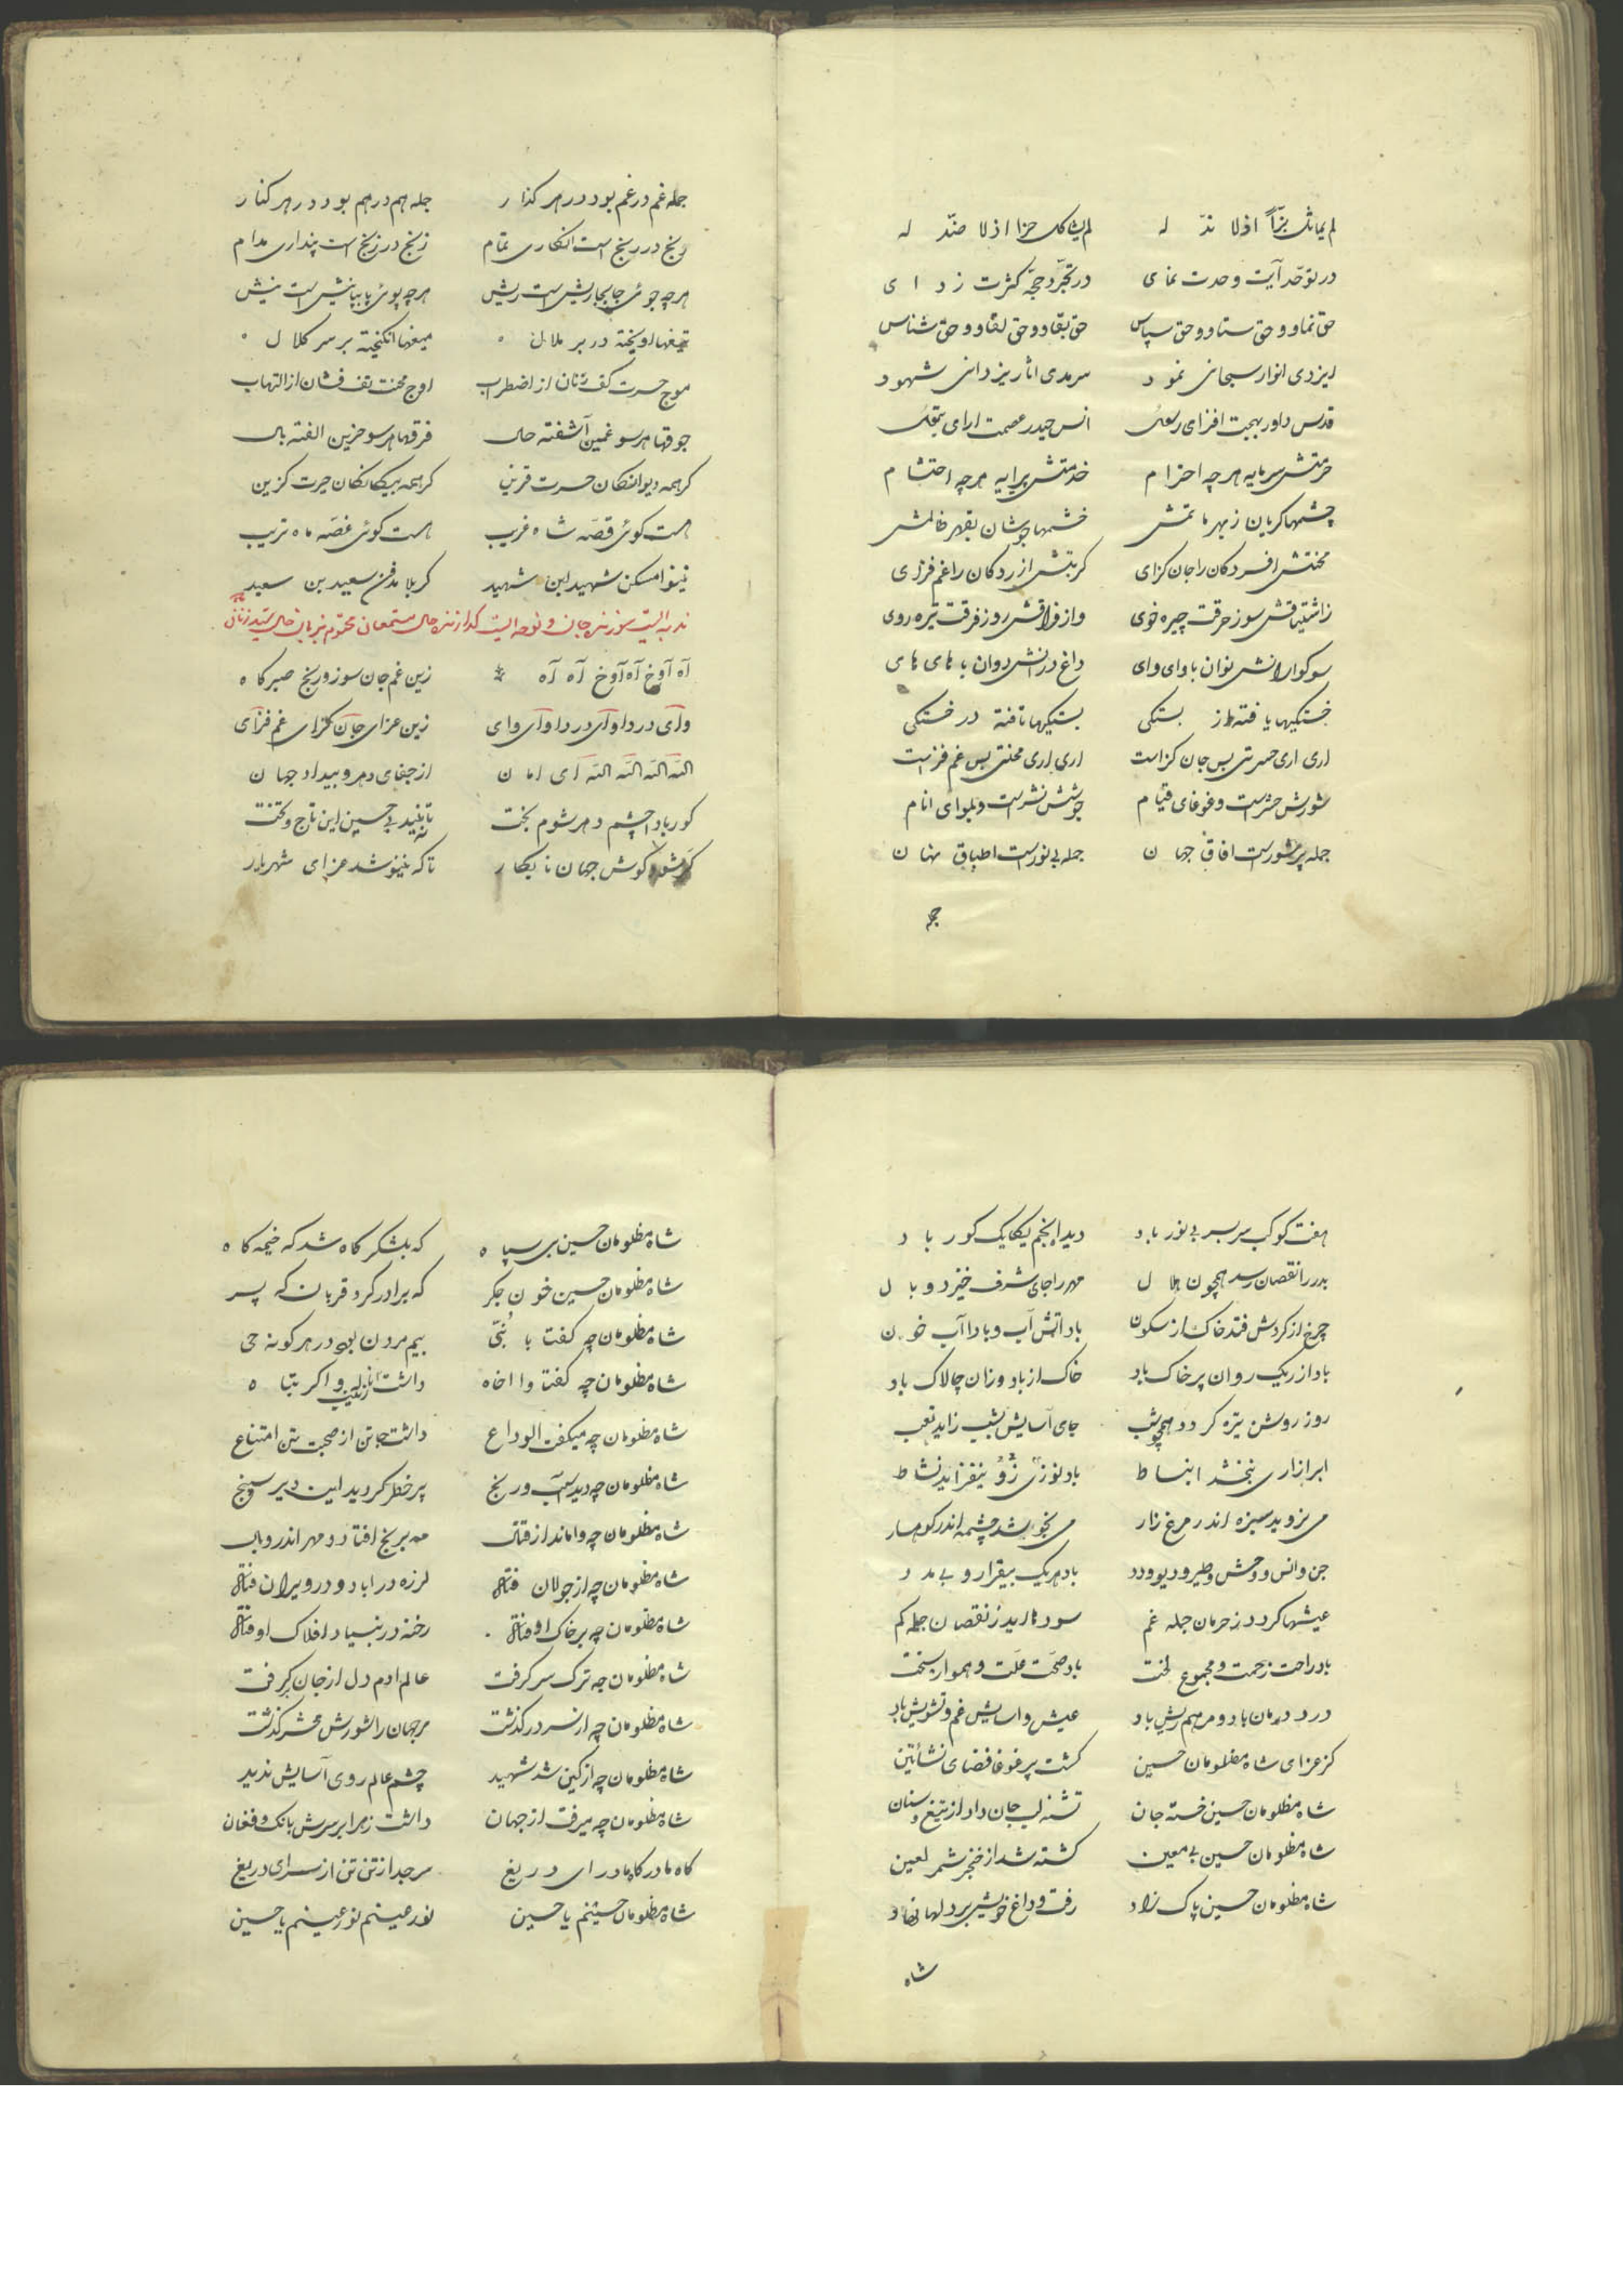 لم یماثل بزّاً اذ لا ندّ له لم یشاکل حزا اذ لا ضدّ له
در توحّد آیت وحدت نمای در تجرّد حجّه کثرت زدای
حق نما و حق ستا و حق سپاس حق بقا و حق لقا و حق شناس
ایزدی انوار سبحانی نمود سرمدی اثار یزدانی شهود
قدس داور بهجت افزای انس حیدر عصمت ارای
حرمتش سرمایه هر چه احترام خدمتش پیرایه هر چه احتشام
چشمها کریان ز بهر ماتمش خشمها جوشان بقهر ظالمش
محنتش افسردکان را جان کزای کربتش ازردکان را غم فزای
ز اشتیاقش سوز حرقت چیره خوی و از فراقش روز فرقت تیره روی
سوکوارانش نوان با وای وای داغ دارانش دوان با های های
خستکیها یافته از بستکی بستکیها تافته در خستکی
اری اری حسرتی بس جان کزاست اری اری محنتی بس غم فزاست
شورش حشر است و غوغای قیام جوشش نشر است و بلوای انام
جمله پر شور است افاق جهان جمله بی نور است اطباق نهان
جمله
جمله غم در غم بود در هر کذار جمله هم در هم بود در هر کنار
رنج در رنج است انکاری تمام زنج در زنج است پنداری مدام
هر چه جوئی جابجا ریش است ریش هر چه پوئی پا بپا نیش است نیش
تیغها اویخته در بر ملال میغها انکیخته بر سر کلال
موج حسرت کف زنان از اضطراب اوج محنت تف فشان از التهاب
جوقها هر سو غمین آشفته حال فرقها هر سو حزین الفته بال
کر همه دیوانکان حسرت قرین کر همه بیکانکان حیرت کزین
هست کوئی قصّه شاه غریب هست کوئی غصّه ماه تریب
نینوا مسکن شهید ابن شهید کربلا مدفن سعید بن سعید
ندبه ایست سوزنده جان و نوحه ایست کدازنده حال مستمعان
آه آوخ آه آوخ آه آه زین غم جان سوز و رنج صبر کاه
وای دردا وای دردا وای وای زین عزای جان کزای غم فزای
الله الله الله الله ای امان از جفای دهر و بیداد جهان
کور بادا چشم دهر شوم بخت تا نبیند بی حسین این تاج و تخت
کر شود کوش جهان نابکار تا که نینوشد عزای شهریار
هفت کوکب سر بسر بی نور باد دید انجم یکایک کور باد
بدر را نقصان رسد همچون هلال مهر را جای شرف خیزد وبال
چرخ از کردش فتد خاک از سکون باد اتش آب و بادا آب خون
باد از ریک روان پر خاک باد خاک از باد وزان چالاک باد
روز روشن تیره کردد همچو شب جای آسایش بشب زاید تعب
ابر ازاری نبخشد انبساط باد نوروزی نیفزاید نشاط
می نروید سبزه اندر مرغزار می نجوشد چشمه اندر کوهسار
جن و انس و وحش و طیر و دیو و دد باد هریک بیقرار و بی مدد
عیشها کردد ز حرمان جمله غم سودها اید ز نقصان جمله کم
باد راحت زحمت و مجموع لخت باد صحّت علّت و هموار سخت
درد درمان باد و مرهم ریش باد عیش و اسایش غم و تشویش باد
کز عزای شاه مظلومان حسین کشت پر غوغا فضای نشأتین
شاه مظلومان حسین خسته جان تشنه لب جان داد از تیغ و سنان
شاه مظلومان حسین بی معین کشته شد از خنجر شمر لعین
شاه مظلومان حسین پاک زاد رفت و داغ خویش بر دلها نهاد
شاه
شاه مظلومان حسین بی سپاه که بلشکر کاه شد که خیمه کاه
شاه مظلومان حسین خون جکر که برادر کرد قربان که پسر
شاه مظلومان چه کفت یا بُنیّ بیم مردن بود در هر کونه حی
شاه مظلومان چه کفتا وا اخاه داشت زینب وا کربتاه
شاه مظلومان چه میکفت الوداع داشت جانن از صحبت تن امتناع
شاه مظلومان چه دید آسیب و رنج پر خطر کردید این دیر سپنج
شاه مظلومان چه واماند از قتال مه برنج افتاد و مهر اندر وبال
شاه مظلومان چه از جولان فتاد لرزه در اباد و در ویران فتاد
شاه مظلومان چه بر خاک اوفتاد رخنه در بنیاد افلاک اوفتاد
شاه مظلومان چه ترک سر کرفت عالم ادم دل از جان بر کرفت
شاه مظلومان چه از سر در کذشت مر جهان را شورش محشر کذشت
شاه مظلومان چه از کین شد شهید چشم عالم روی آسایش ندید
شاه مظلومان چه میرفت از جهان داشت زهرا بر سرش بانک و فغان
کاه مادر کاه مادر ای دریغ سر جدا از تن تن از سر ای دریغ
شاه مظلومان حسینم یا حسین نور عینم نور عینم یا حسین